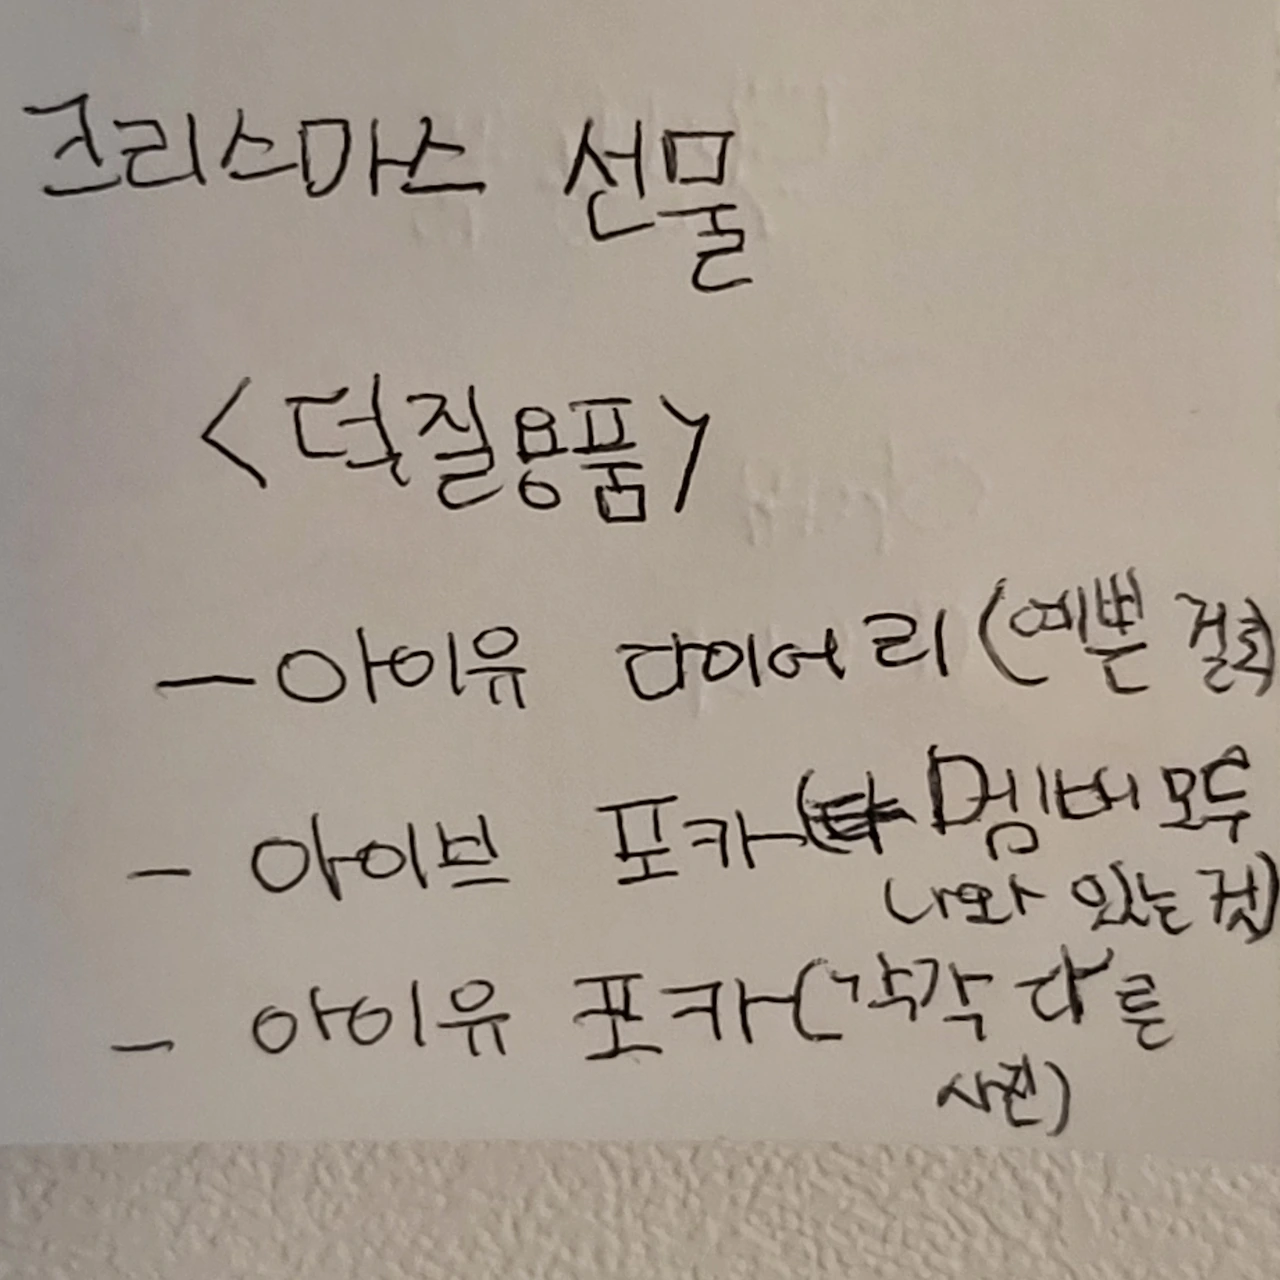 크리스마스 선물
<덕질용품>
- 아이유 다이어리 (예쁜 걸로)
- 아이브 포카 (멤버 모두
나와 있는 것)
- 아이유 포카 (각각 다른
사진)